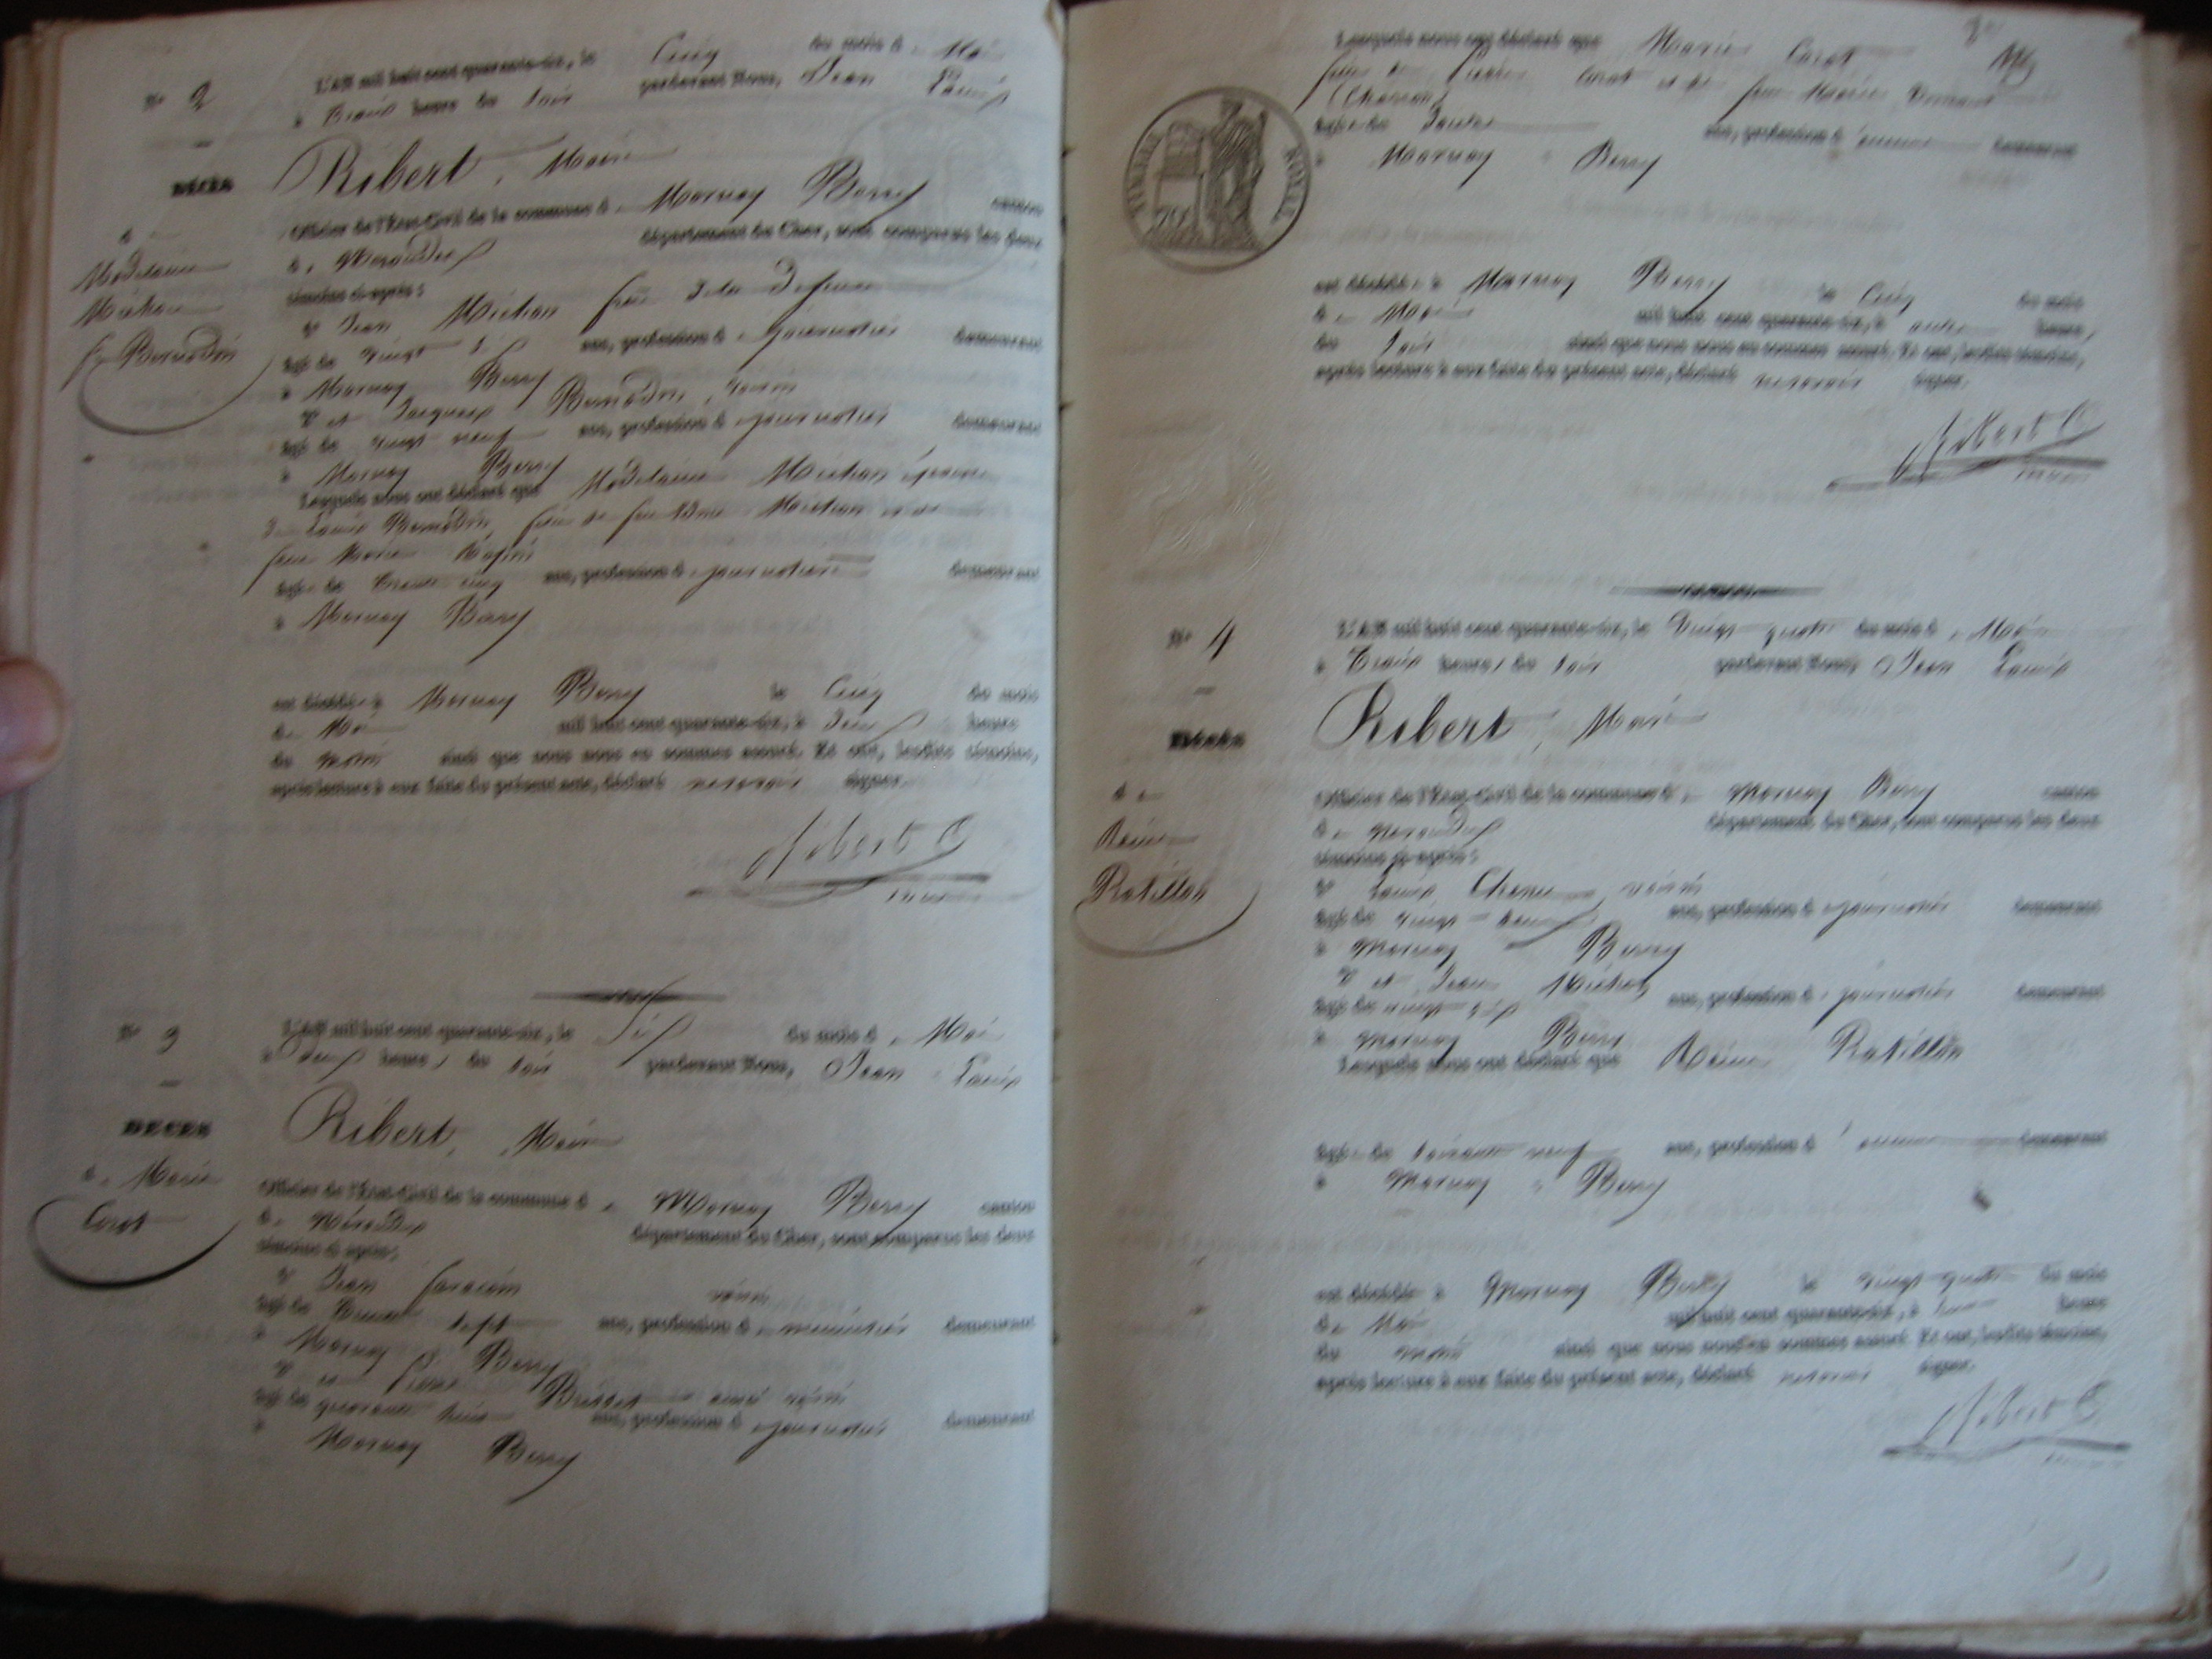 N° 2
L'AN mil huit cent quarante-six, le Cinq du mois de Mai
à Trois heures du soir pardevant Nous, Jean Louis
DÉCÈS
Ribert, Maire
Officier de l'État-Civil de la commune de Mornay Berry canton
de Nérondes département du Cher, sont comparus les deux
témoins ci-après :
de
Madelaine
Michon
fe Bernadin
1° Jean Michon frère de la défunte
âgé de vingt six ans, profession de journalier demeurant
à Mornay Berry
2° et Jacques Bernadin, voisin
âgé de vingt neuf ans, profession de journalier demeurant
à Mornay Berry
Lesquels nous ont déclaré que Madelaine Michon épouse
de Louis Bernadin, fille de feu Michon et de
feue Marie
âgée de trente cinq ans, profession de journalière demeurant
à Mornay Berry
est décédée à Mornay Berry le Cinq du mois
de Mai mil huit cent quarante-six, à deux heures
du matin ainsi que nous nous en sommes assuré. Et ont, lesdits témoins,
après lecture à eux faite du présent acte, déclaré ne savoir signer.
Ribert
maire
N° 3
L'AN mil huit cent quarante-six, le Six du mois de Mai
à deux heures du soir pardevant Nous, Jean Louis
DÉCÈS
Ribert, Maire
de Marie
Corot
Officier de l'État-Civil de la commune de Mornay Berry canton
de Nérondes département du Cher, sont comparus les deux
témoins ci-après :
1° Jean voisin
âgé de trente sept ans, profession de demeurant
à Mornay Berry
2° et Pierre ainé voisin
âgé de quarante huit ans, profession de journalier demeurant
à Mornay Berry
Lesquels nous ont déclaré que Marie Corot
fille de Corot et de feue Marie
âgée de ans, profession de aucune demeurant
à Mornay Berry
TIMBRE ROYAL
est décédée à Mornay Berry le Cinq du mois
de Mai mil huit cent quarante-six, à onze heures
du soir ainsi que nous nous en sommes assuré. Et ont, lesdits témoins,
après lecture à eux faite du présent acte, déclaré ne savoir signer.
Ribert
maire
N° 4
L'AN mil huit cent quarante-six, le Vingt quatre du mois de Mai
à Trois heures du soir pardevant Nous, Jean Louis
DÉCÈS
Ribert, Maire
de
Reine
Ratillon
Officier de l'État-Civil de la commune de Mornay Berry canton
de Nérondes département du Cher, sont comparus les deux
témoins ci-après :
1° Louis Chenu, voisin
âgé de vingt deux ans, profession de journalier demeurant
à Mornay Berry
2° et Jean Michon
âgé de vingt six ans, profession de journalier demeurant
à Mornay Berry
Lesquels nous ont déclaré que Reine Ratillon
âgée de soixante neuf ans, profession de aucune demeurant
à Mornay Berry
est décédée à Mornay Berry le vingt quatre du mois
de Mai mil huit cent quarante-six, à heures
du matin ainsi que nous nous en sommes assuré. Et ont, lesdits témoins,
après lecture à eux faite du présent acte, déclaré ne savoir signer.
Ribert
maire